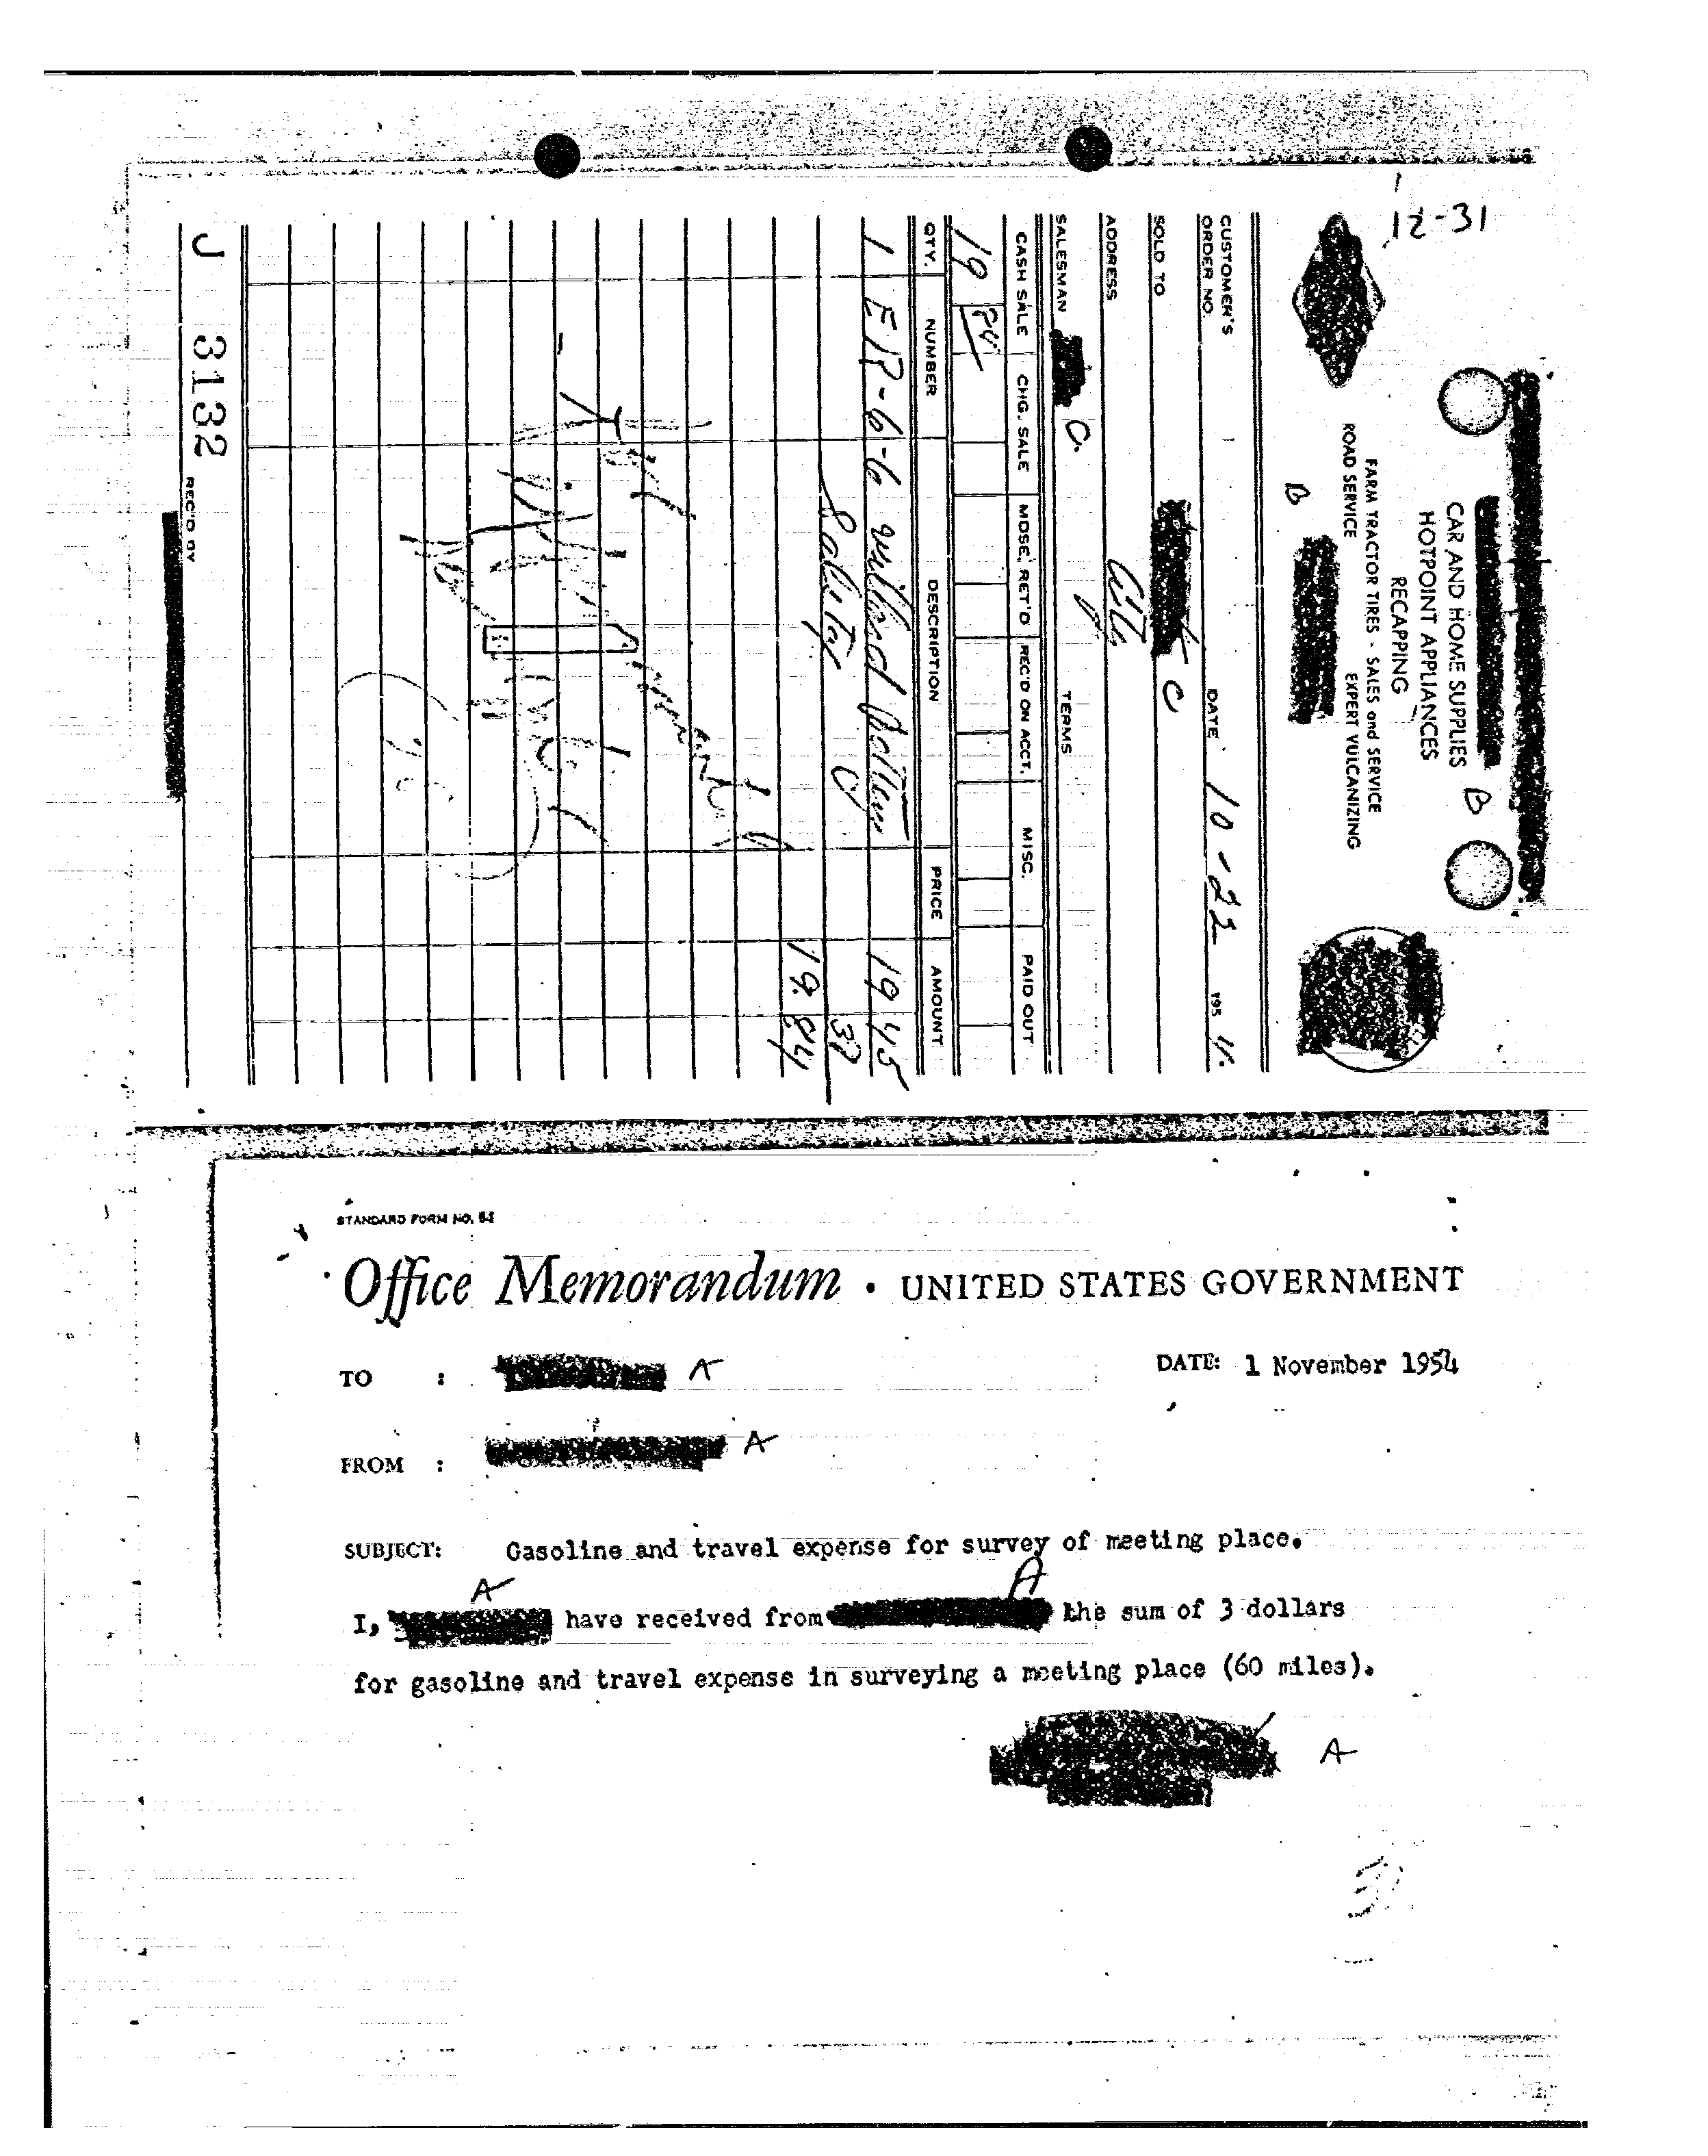 12-31
CAR AND HOME SUPPLIES
B
HOTPOINT APPLIANCES
RECAPPING
FARM TRACTOR TIRES - SALES and SERVICE
ROAD SERVICE EXPERT VULCANIZING
B
CUSTOMER'S
ORDER NO. DATE 10-22 195 4.
SOLD TO C
ADDRESS City
SALESMAN C. TERMS
CASH SALE CHG. SALE MDSE. RET'D REC'D ON ACCT. MISC. PAID OUT
19 84
QTY. NUMBER DESCRIPTION PRICE AMOUNT
1 ER-6-6 willard Battery 19 45
Sales tax 39
19.84
J 3132 REC'D BY
STANDARD FORM NO. 64
Office Memorandum • UNITED STATES GOVERNMENT
TO : A DATE: 1 November 1954
FROM : A
SUBJECT: Gasoline and travel expense for survey of meeting place.
A A
I, have received from the sum of 3 dollars
for gasoline and travel expense in surveying a meeting place (60 miles).
A